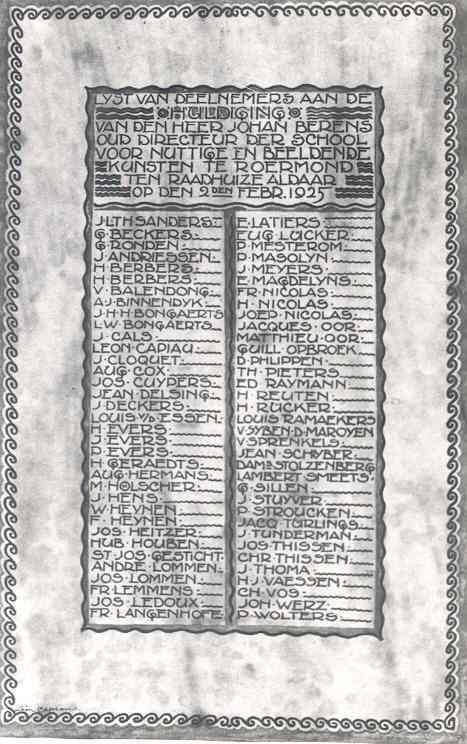 LYST VAN DEELNEMERS AAN DE
HULDIGING
VAN DEN HEER JOHAN BERENS
OUD DIRECTEUR DER SCHOOL
VOOR NUTTIGE EN BEELDENDE
KUNSTEN TE ROERMOND
TEN RAADHUIZE ALDAAR
OP DEN 2DEN FEBR. 1925
J.L.TH SANDERS
G. BECKERS
G. RONDEN
J. ANDRIESSEN
H. BERBERS
H. BERBERS
V. BALENDONG
A.J. BINNENDYK
J.H.H. BONGAERTS
L.W. BONGAERTS
J. CALS
LEON CAPIAU
J. CLOQUET
AUG COX
JOS CUYPERS
JEAN DELSING
J. DECKERS
LOUIS V/D ESSEN
H. EVERS
J. EVERS
P. EVERS
H. GERAEDTS
AUG HERMANS
M. HOLSCHER
J. HENS
W. HEYNEN
F. HEYNEN
JOS HEITZER
HUB. HOUBEN
ST. JOS GESTICHT
ANDRE LOMMEN
JOS LOMMEN
FR. LEMMENS
JOS LEDOUX
FR. LANGENHOFF
E. LATIERS
EUG LÜCKER
P. MESTEROM
P. MASOLYN
J. MEYERS
E. MAGDELYNS
FR. NICOLAS
H. NICOLAS
JOEP NICOLAS
JACQUES OOR
MATTHIEU OOR
GUILL OPBROEK
D. PHLIPPEN
TH. PIETERS
ED RAYMANN
H. REUTEN
H. RÜCKER
LOUIS RAMAEKERS
V. SYBEN. D. MAROYEN
V. SPRENKELS
JEAN SCHYBER
DAMES STOLZENBERG
LAMBERT SMEETS
G. SILLEN
J. STUYVER
P. STROUCKEN
JACQ TÜRLINGS
J. TUNDERMAN
JOS THISSEN
CHR. THISSEN
J. THOMA
H.J. VAESSEN
CH. VOS
JOH. WERZ
P. WOLTERS